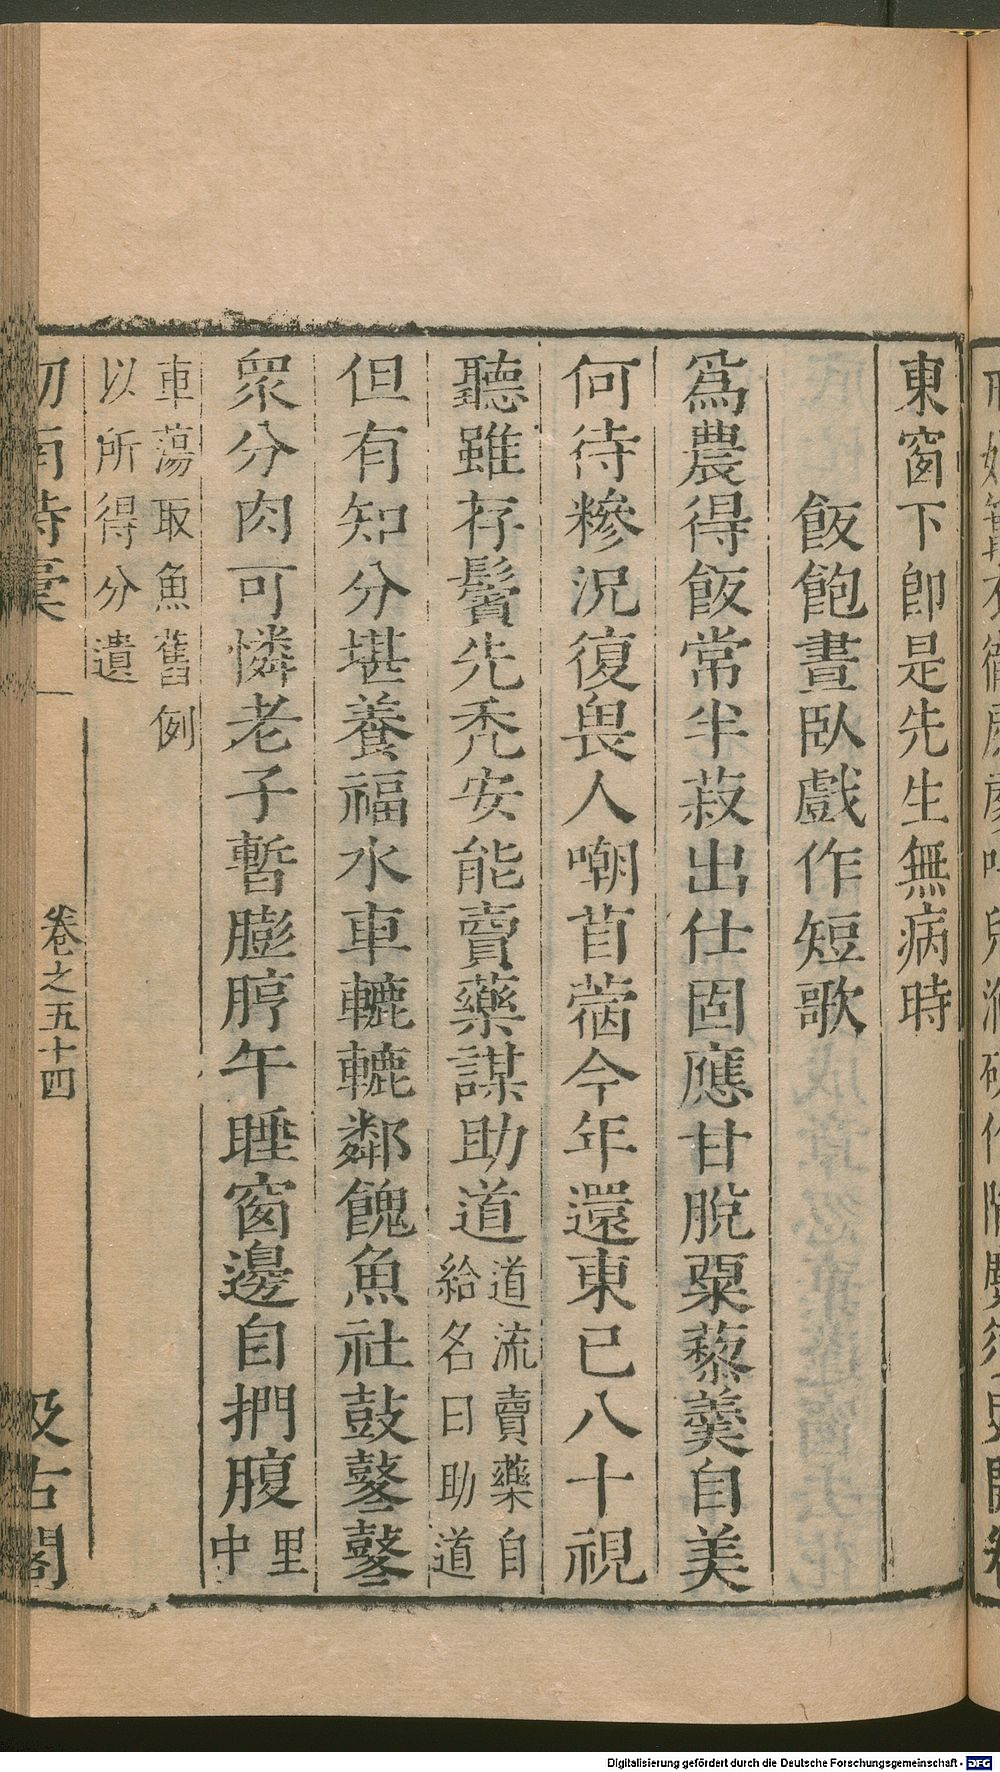 東窗下即是先生無病時
飯飽晝臥戲作短歌
爲農得飯常半菽出仕固應甘脫粟藜羹自美
何待糝況復畏人嘲苜蓿今年還東已八十視
聽雖存鬢先禿安能賣藥謀助道道流賣藥自
給名曰助道
但有知分堪養福水車轆轆鄰餽魚社鼓鼕鼕
衆分肉可憐老子暫膨脝午睡窗邊自捫腹里
中
車蕩取魚舊例
以所得分遺
劒南詩稾
卷之五十四
汲古閣
Digitalisierung gefördert durch die Deutsche Forschungsgemeinschaft - DFG